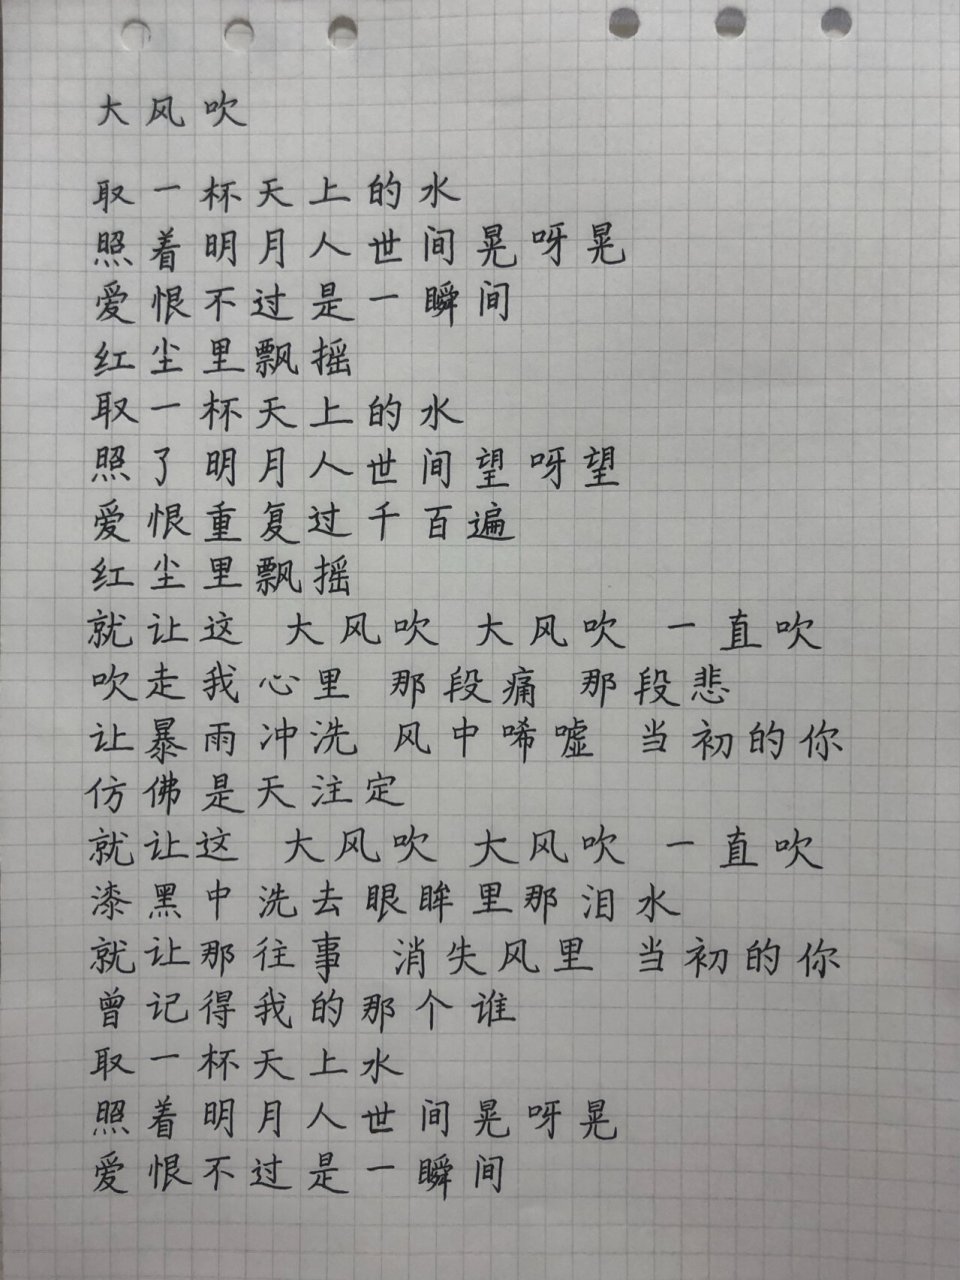 大风吹
取一杯天上的水
照着明月人世间晃呀晃
爱恨不过是一瞬间
红尘里飘摇
取一杯天上的水
照了明月人世间望呀望
爱恨重复过千百遍
红尘里飘摇
就让这 大风吹 大风吹 一直吹
吹走我心里 那段痛 那段悲
让暴雨冲洗 风中唏嘘 当初的你
仿佛是天注定
就让这 大风吹 大风吹 一直吹
漆黑中洗去眼眸里那泪水
就让那往事 消失风里 当初的你
曾记得我的那个谁
取一杯天上水
照着明月人世间晃呀晃
爱恨不过是一瞬间